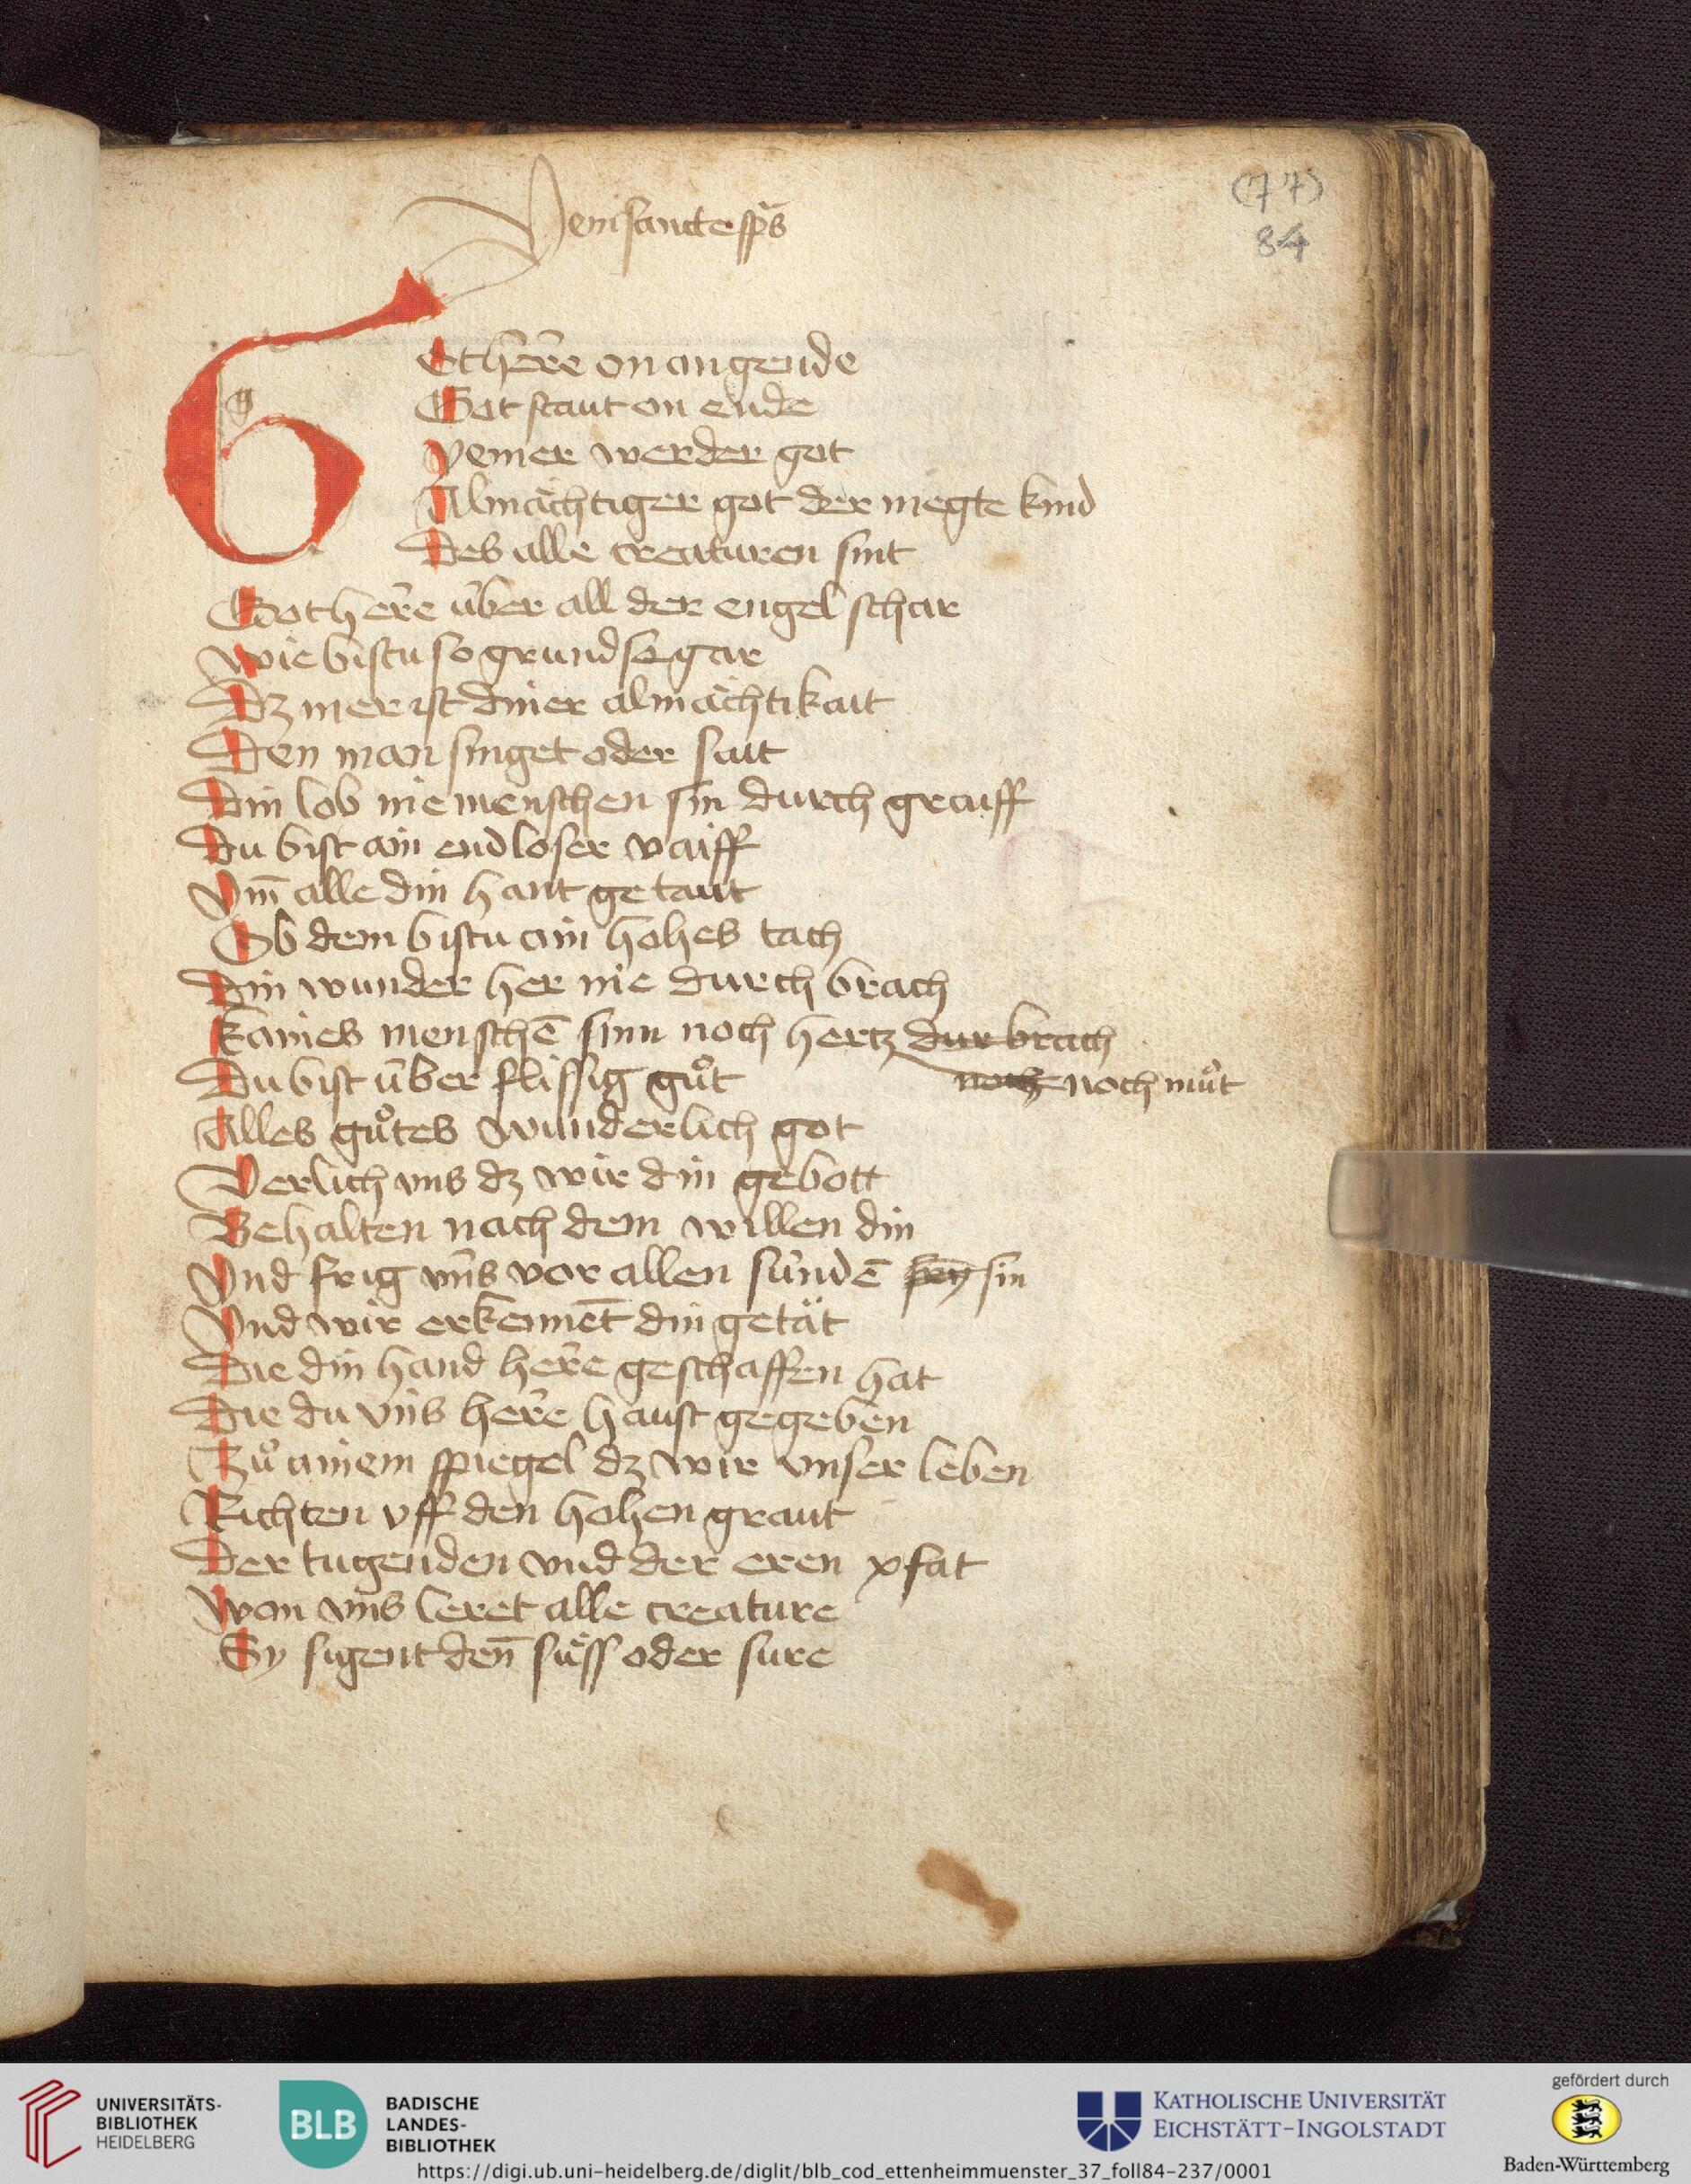 (77)
84
Veni sancte sps̄
g
GOt her̄e on angende
Got staut on ende
Yemer werder got
Almächtiger got der megte kind
Des alle creaturen sint
Got her̄e über all der engel schar
wie bistu so grundso gar
Dz mer ist diner almächtikait
Den man singet oder sait
Din lob nie menschen sin durch graiff
Du bist ain endloser raiff
Vm̄ alle din hant getaut
Ob dem bistu ain hohes tach
Din wunder her nie durch brach
kaines menschē sinn noch hertz dur brach
Du bist über flüssig guͦt noch noch muͦt
Alles guͦtes wunderlich got
Verlich vns dz wir din gebott
Behalten nach dem willen din
Vnd frig vn̄s vor allen sündē fry sin
Vnd wir erkennēt din getät
Die din hand her̄e geschaffen hat
Die du vn̄s her̄e haust gegeben
Zuͦ ainem spiegel dz wir vnser leben
Richten vff den hohen graut
Der tugenden vnd der eren pfat
wan vn̄s leret alle creature
Sy sigent den̄ süss oder sure
UNIVERSITÄTS-
BIBLIOTHEK
HEIDELBERG
BLB
BADISCHE
LANDES-
BIBLIOTHEK
KATHOLISCHE UNIVERSITÄT
EICHSTÄTT-INGOLSTADT
gefördert durch
Baden-Württemberg
https://digi.ub.uni-heidelberg.de/diglit/blb_cod_ettenheimmuenster_37_foll84-237/0001